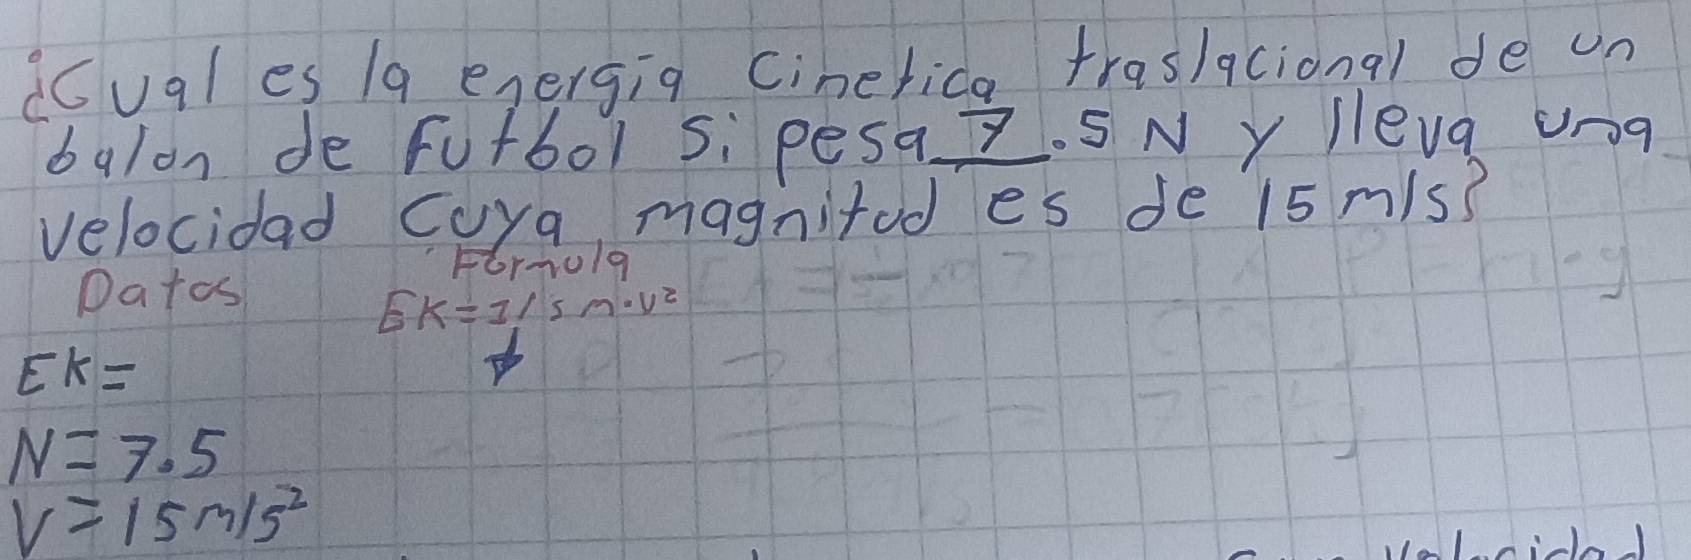 ¿Cual es la energia Cinetica traslacional de un
balon de Futbol Si pesa 7.5 N y lleva una
velocidad Cuya magnitud es de 15 m/s?
Datos
Formula
EK=1/5 m·v²
EK=
N=7.5
V=15m/s²
velocidad